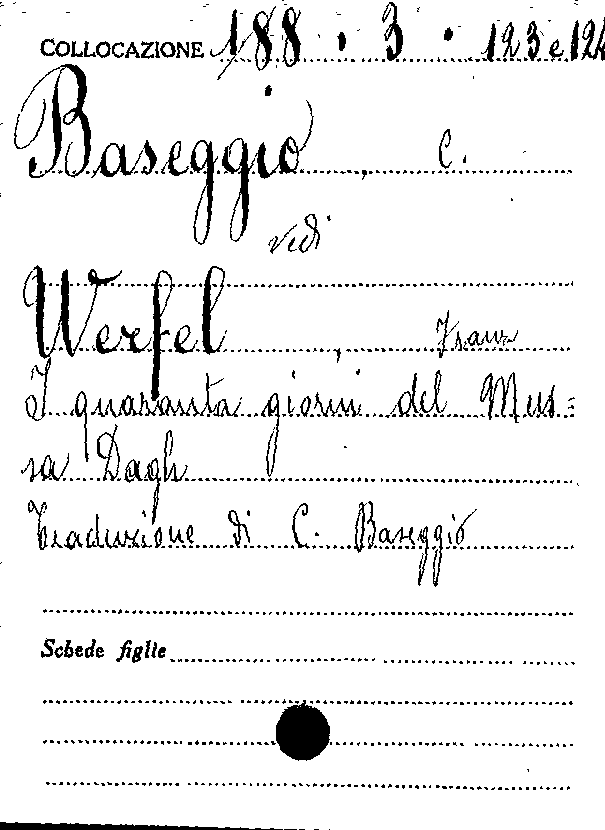 COLLOCAZIONE 188 . 3 . 123 e 124
Baseggio, C.
vedi
Werfel, Franz
I quaranta giorni del Mus=
sa Dagh
Traduzione di C. Baseggio
Schede figlie